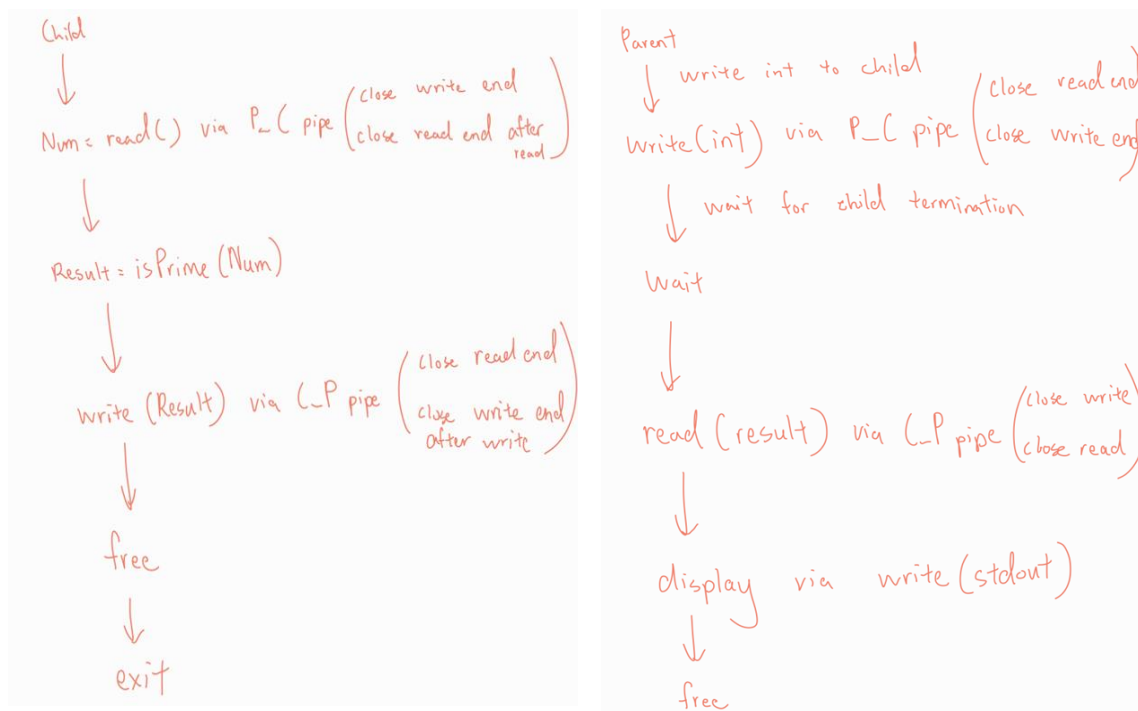 Child
Num = read() via P_C pipe (close write end
close read end after
read)
Result = isPrime(Num)
write (Result) via C_P pipe (close read end
close write end
after write)
free
exit
Parent
write int to child
write(int) via P_C pipe (close read end
close write end)
wait for child termination
Wait
read (result) via C_P pipe (close write
close read)
display via write(stdout)
free